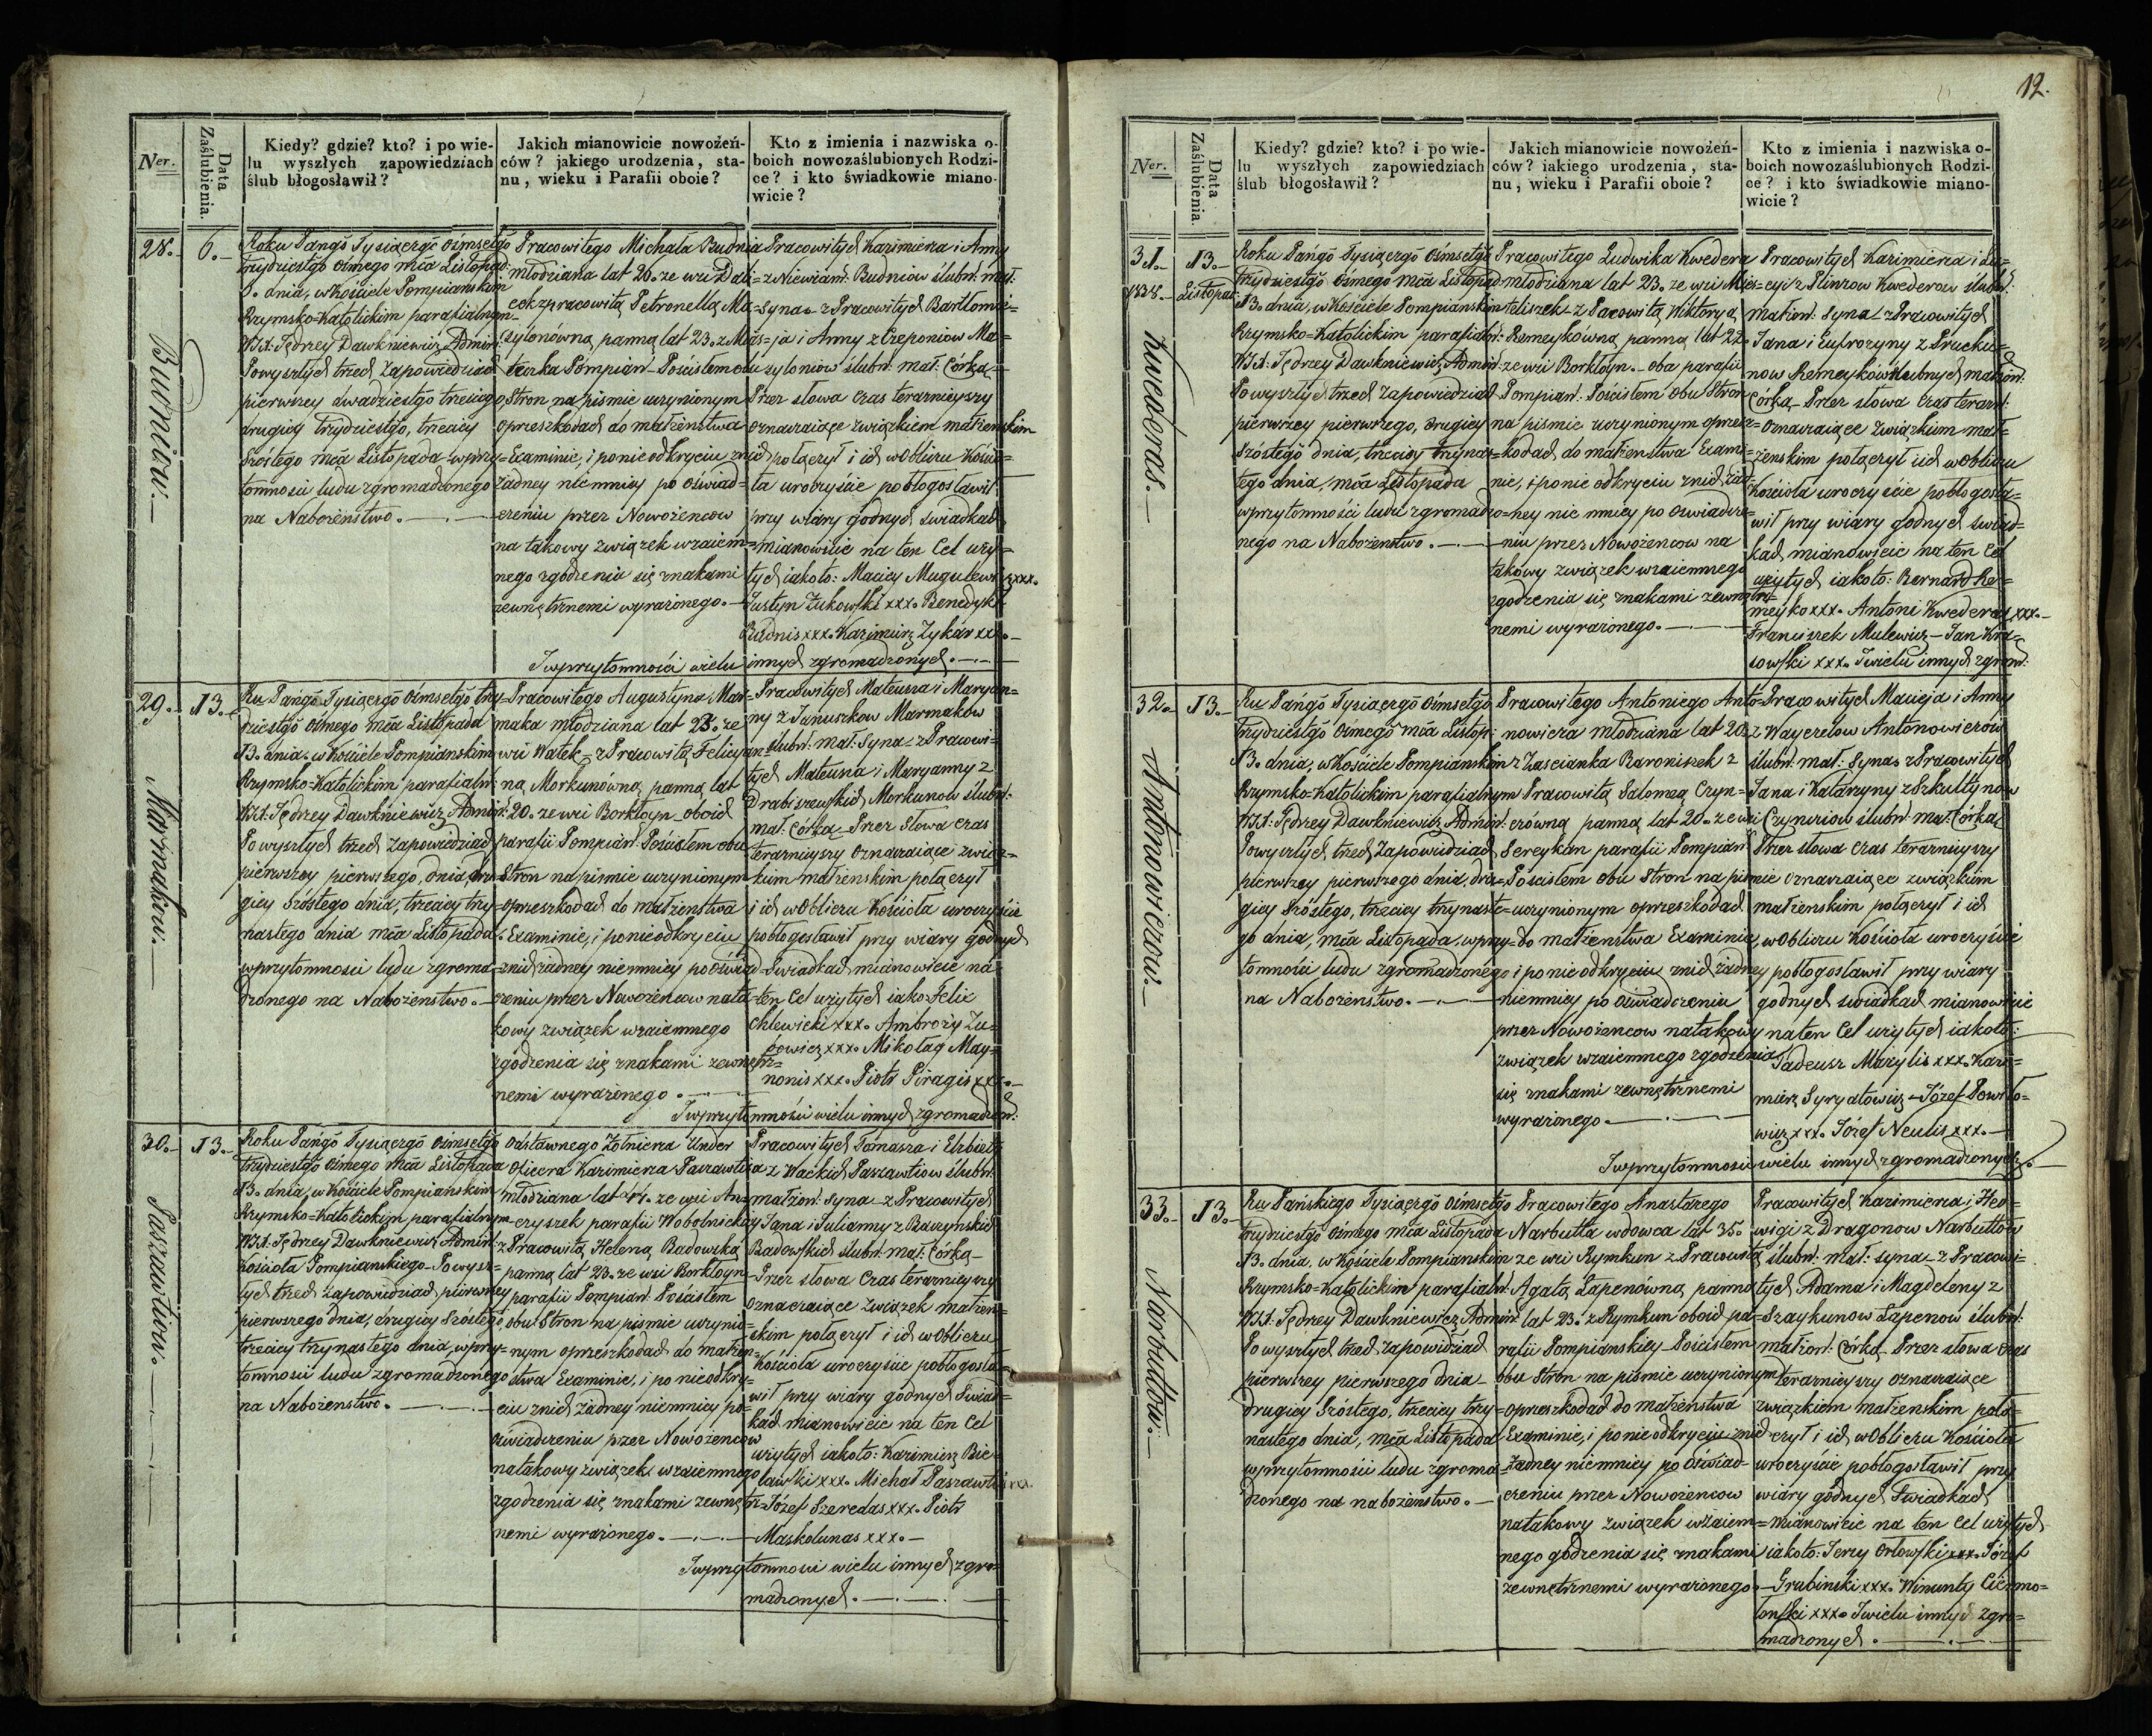 12.
Ner.
Data Zaślubienia.
Kiedy? gdzie? kto? i po wie-
lu wyszłych zapowiedziach
ślub błogosławił?
Jakich mianowicie nowożeń-
ców? jakiego urodzenia, sta-
nu, wieku i Parafii oboie?
Kto z imienia i nazwiska o-
boich nowozaślubionych Rodzi-
ce? i kto świadkowie miano-
wicie?
28.
6.
Budniow.
Roku Pańgō Tysiącgō Ośmsetgō
trzydziestgō ósmego mca Listopad:
6. dnia, w Kościele Pompianskim
Rzymsko=Katolickim parafialnym
WJX: Jędrzey Dawkniewicz Admin:
Powyszłych trzech zapowiedziach
pierwszey dwadziestgo trzeciego
drugiey trzydziestgo, trzeciey
szóstego mca Listopada w przy=
tomności ludu zgromadzonego
na Nabożeństwo.
Pracowitego Michała Budnia
młodziana lat 20. ze wsi Dau=
z pracowitą Petronellą Ma=
szylonówną panną lat 23.
Pompiań Pościsłem obu
Stron na piśmie uczynionym
o przeszkodach do małżeństwa
Examinie, i ponieodkryciu znich
żadney niemniey po oświad=
czeniu przez Nowożeńcow
na takowy związek wzaiem=
nego zgodzenia się znakami
zewnętrznemi wyrażonego.
Pracowitych Kazimierza i Anny
z Niewiarn: Budniow ślubn: mał:
Syna z Pracowitych Bartłomie=
ja i Anny z Czeponiow Ma=
szyloniow ślubn: mał: Córką
Przez słowa czas teraznieyszy
oznaczaiące związkiem małżenskim
połączył i ich w Obliczu Kościo=
ła uroczyście pobłogosławił
przy wiary godnych świadkach
mianowicie na ten Cel uży=
tych iakoto: Maciey Mugulewicz xxx.
Justyn Żukowski xxx. Benedykt
Budnis xxx. Kazimierz Zykar xxx.
I w przytomności wielu innych zgromadzonych.
29.
13.
Marmakow.
Ru Pańgō Tysiącgō Ośmsetgō trzy=
dziestgō ósmego mca Listopada
13. dnia w Kościele Pompianskim
Rzymsko=Katolickim parafialn:
WJX: Jędrzey Dawkniewicz Admin:
Po wyszłych trzech zapowiedziach
pierwszey pierwszego, dnia, dru=
giey szóstego dnia, trzeciey trzy=
nastego dnia mca Listopada
w przytomnosci ludu zgroma=
dzonego na Nabożeństwo.
Pracowitego Augustyna Mar=
maka młodziana lat 23. ze
wsi Watek z Pracowitą Felicyan=
ną Morkunówną panną lat
20. ze wsi Borkłoyn oboich
parafii Pompian: Pościsłem obu
Stron na piśmie uczynionym
o przeszkodach do małżeństwa
Examinie, i ponieodkryciu
znich żadney niemniey po oświad=
czeniu przez Nowożeńcow na ta=
kowy związek wzaiemnego
zgodzenia się znakami zewnętrz=
nemi wyrażonego.
Pracowitych Mateusza i Maryan=
ny z Januszkow Marmaków
ślubn: mał: Syna z Pracowi=
tych Mateusza i Maryanny z
Drabiszewskich Morkunow ślubn:
mał: Córką Przez Słowa czas
teraznieyszy oznaczaiące związ=
kiem małżenskim połączył
i ich w Obliczu Kościoła uroczyście
pobłogosławił przy wiary godnych
Świadkach mianowicie na
ten Cel użytych iako Felix
Chlewicki xxx. Ambroży Zu=
bowicz xxx. Mikołay May=
nonis xxx. Piotr Piragis xxx.
I w przytomności wielu innych zgromadzon:
30.
13.
Paszawtiow.
Roku Pańgō Tysiącgō Ośmsetgō
trzydziestgō ósmego mca Listopada
13. dnia, w Kościele Pompiańskim
Rzymsko=Katolickim parafialnym
WJX: Jędrzey Dawkniewicz Admin:
Kościoła Pompianskiego Powysz=
łych trzech zapowiedziach pierwszey
pierwszego dnia, drugiey szóstego
trzeciey trzynastego dnia, w przy=
tomności ludu zgromadzonego
na Nabożeństwo.
Odstawnego Żołnierza Under
Oficera Kazimierza Paszawtisa
młodziana lat 44. ze wsi An=
czyszek parafii Wobolnickiey
z Pracowitą Heleną Badowską
panną lat 23. ze wsi Borkłoyn
parafii Pompian: Pościsłem
obu Stron na piśmie uczynio=
nym o przeszkodach do małżeń=
stwa Examinie, i po nieodkry=
ciu znich żadney niemniey po
oświadczeniu przez Nowożeńcow
natakowy związek wzaiemnego
zgodzenia się znakami zewnętrz=
nemi wyrażonego.
Pracowitych Tamasza i Elzbiety
z Wackich Paszawtiow ślubn:
małżon: Syna z Pracowitych
Jana i Julianny z Baczynskich
Badowskich ślubn: mał: Córką
Przez słowa Czas teraznieyszy
oznaczaiące związek małżen=
skim połączył i ich w Obliczu
Kościoła uroczyście pobłogosła=
wił przy wiary godnych świad=
kach mianowicie na ten Cel
użytych iakoto: Kazimierz Bie=
lawski xxx. Michał Paszawtis xxx.
Józef Szeredas xxx. Piotr
Maskolunas xxx.
I w przytomności wielu innych zgro=
madzonych.
Ner.
Data Zaślubienia.
Kiedy? gdzie? kto? i po wie-
lu wyszłych zapowiedziach
ślub błogosławił?
Jakich mianowicie nowożeń-
ców? iakiego urodzenia, sta-
nu, wieku i Parafii oboie?
Kto z imienia i nazwiska o-
boich nowozaślubionych Rodzi-
ce? i kto świadkowie miano-
wicie?
31.
1838.
13.
Listopad:
Kwederas.
Roku Pańgō Tysiącgō Ośmsetgō
trzydziestgō Ośmego mca Listopad:
13. dnia, w Kościele Pompianskim
Rzymsko=Katolickim parafialn:
WJX: Jędrzey Dawkniewicz Admin:
Powyszłych trzech zapowiedziach
pierwszey pierwszego, drugiey
szóstego dnia, trzeciey trzynas=
tego dnia, mca Listopada
w przytomności ludu zgromadzo=
nego na Nabożeństwo.
Pracowitego Ludwika Kwedera
młodziana lat 23. ze wsi Mie=
liszek z Pracowitą Wiktoryą
Remeykówną panną lat 22.
ze wsi Borkłoyn. oba parafii
Pompian: Pościsłem obu Stron
na piśmie uczynionym o przesz=
kodach do małżenstwa Exami=
nie, i ponie odkryciu znich żad=
ney nie mniey po oświadcze=
niu przez Nowożeńcow na
takowy związek wzaiemnego
zgodzenia się znakami zewnętrz=
nemi wyrażonego.
Pracowitych Kazimierza i Lu=
cyi z Plinzow Kwederow ślubn:
małżon: Syna z Pracowitych
Jana i Eufrozyny z Druchu=
now Remeyków ślubnych małżon:
Córką Przez słowa czas terazn:
oznaczaiące związkiem mał=
żenskim połączył i ich w Obliczu
Kościoła uroczyście pobłogosła=
wił przy wiary godnych świad=
kach mianowicie na ten Cel
użytych iakoto: Bernard Re=
meyko xxx. Antoni Kwederas xxx.
Franciszek Mulewicz Jan Kra=
sowski xxx. I wielu innych zgrom:
32.
13.
Antonowiczow.
Ru Pańgō Tysiącgō Ośmsetgō
trzydziestgō Ośmego mca Listop:
13. dnia, w Kościele Pompianskim
Rzymsko=Katolickim parafialnym
WJX: Jędrzey Dawkniewicz Admin:
Powyszłych trzech Zapowiedziach
pierwszey pierwszego dnia, dru=
giey szóstego, trzeciey trzynaste=
go dnia, mca Listopada, w przy=
tomności ludu zgromadzonego
na Nabożeństwo.
Pracowitego Antoniego Anto=
nowicza młodziana lat 20.
z Zascianka Baroniszek z
Pracowitą Salomeą Czyn=
czówną panną lat 20. ze wsi
Sereykan parafii Pompian:
Pościsłem obu Stron na piśmie
uczynionym o przeszkodach
do małżeństwa Examinie,
i po nie odkryciu znich żadney
niemniey po oświadczeniu
przez Nowożeńcow natakowy
związek wzaiemnego zgodzenia
się znakami zewnętrznemi
wyrażonego.
Pracowitych Macieja i Anny
z Wayczelow Antonowiczów
ślubn: mał: Syna z Pracowitych
Jana i Katarzyny z Szkultynow
Czynczow ślubn: mał: Córką
Przez słowa czas teraznieyszy
oznaczaiące związkiem
małżenskim połączył i ich
w Obliczu Kościoła uroczyście
pobłogosławił przy wiary
godnych świadkach mianowicie
na ten Cel użytych iakoto:
Tadeusz Mazylis xxx. Kazi=
mierz Syrydtowicz Józef Powiło=
wicz xxx. Józef Neulis xxx.
I w przytomności wielu innych zgromadzonych.
33.
13.
Narbuttów.
Ru Pańskiego Tysiącgō Ośmsetgō
trzydziestgō Ośmego mca Listopada
13. dnia, w Kościele Pompianskim
Rzymsko=Katolickim parafialn:
WJX: Jędrzey Dawkniewicz Admin:
Powyszłych trzech zapowiedziach
pierwszey pierwszego dnia
drugiey szóstego, trzeciey trzy=
nastego dnia, mca Listopada
w przytomności ludu zgroma=
dzonego na nabożeństwo.
Pracowitego Anastazego
Narbutta wdowca lat 35.
ze wsi Rymkun z Pracowitą
Agatą Łapenówną panną
lat 23. z Rymkun oboich pa=
rafii Pompianskiey Pościsłem
obu Stron na piśmie uczynionym
o przeszkodach do małżeństwa
Examinie, i ponieodkryciu znich
żadney niemniey po oświad=
czeniu przez Nowożeńcow
natakowy związek wzaiem=
nego godzenia się znakami
zewnętrznemi wyrażonego.
Pracowitych Kazimierza i Hed=
wigi z Dragonow Narbuttow
ślubn: mał: Syna z Pracowi=
tych Adama i Magdeleny z
Szaykunow Łapenow ślubn:
małżon: Córką Przez słowa czas
teraznieyszy oznaczaiące
związkiem małżenskim połą=
czył i ich w Obliczu Kościoła
uroczyście pobłogosławił przy
wiary godnych Świadkach
mianowicie na ten Cel użytych
iakoto: Jerzy Orłowski xxx. Józef
Grubinski xxx. Wincenty Ciermo=
łonski xxx. I wielu innych zgro=
madzonych.